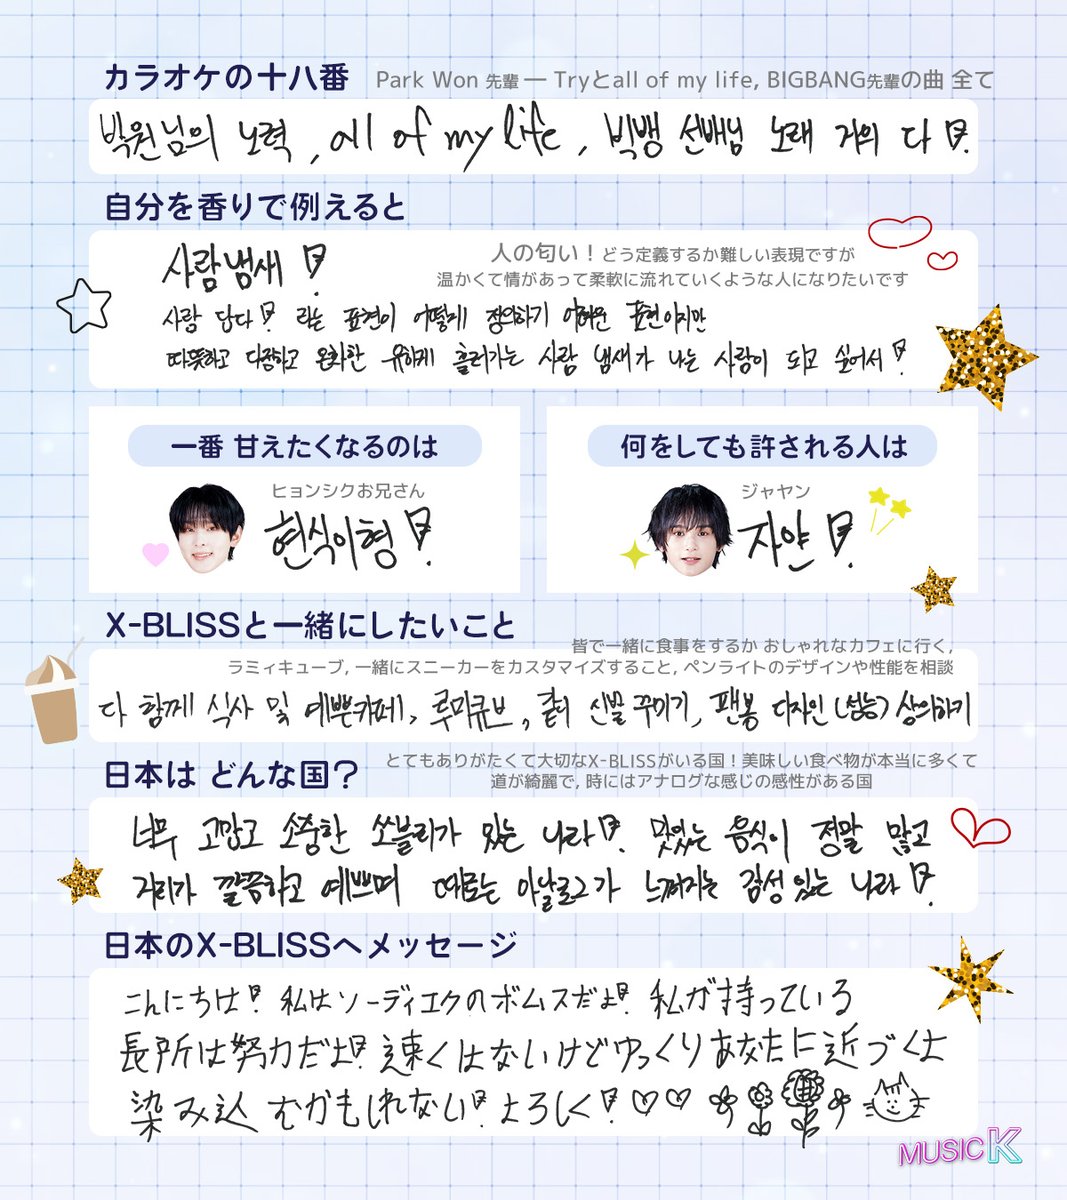 カラオケの十八番
Park Won 先輩 ― Tryとall of my life, BIGBANG先輩の曲 全て
박원님의 노력, all of my life, 빅뱅 선배님 노래 거의 다!
自分を香りで例えると
사람냄새!
人の匂い！どう定義するか難しい表現ですが
温かくて情があって柔軟に流れていくような人になりたいです
사람 답다! 라는 표현이 어떻게 정의하기 어려운 표현이지만
따뜻하고 다정하고 온화한 유하게 흘러가는 사람 냄새가 나는 사람이 되고 싶어서!
一番 甘えたくなるのは
ヒョンシクお兄さん
현식이형!
何をしても許される人は
ジャヤン
자얀!
X-BLISSと一緒にしたいこと
皆で一緒に食事をするか おしゃれなカフェに行く,
ラミィキューブ, 一緒にスニーカーをカスタマイズすること, ペンライトのデザインや性能を相談
다 함께 식사 및 예쁜카페, 루미큐브, 같이 신발 꾸미기, 팬봉 디자인 (성능) 상의하기
日本は どんな国？
とてもありがたくて大切なX-BLISSがいる国！美味しい食べ物が本当に多くて
道が綺麗で, 時にはアナログな感じの感性がある国
너무 고맙고 소중한 쏘블리가 있는 나라! 맛있는 음식이 정말 많고
거리가 깔끔하고 예쁘며 때로는 아날로그가 느껴지는 감성있는 나라!
日本のX-BLISSへメッセージ
こんにちは! 私はソーディエクのボムスだよ! 私が持っている
長所は努力だよ! 速くはないけどゆっくりあなたに近づくよ
染み込むかもしれない! よろしく!
MUSIC K